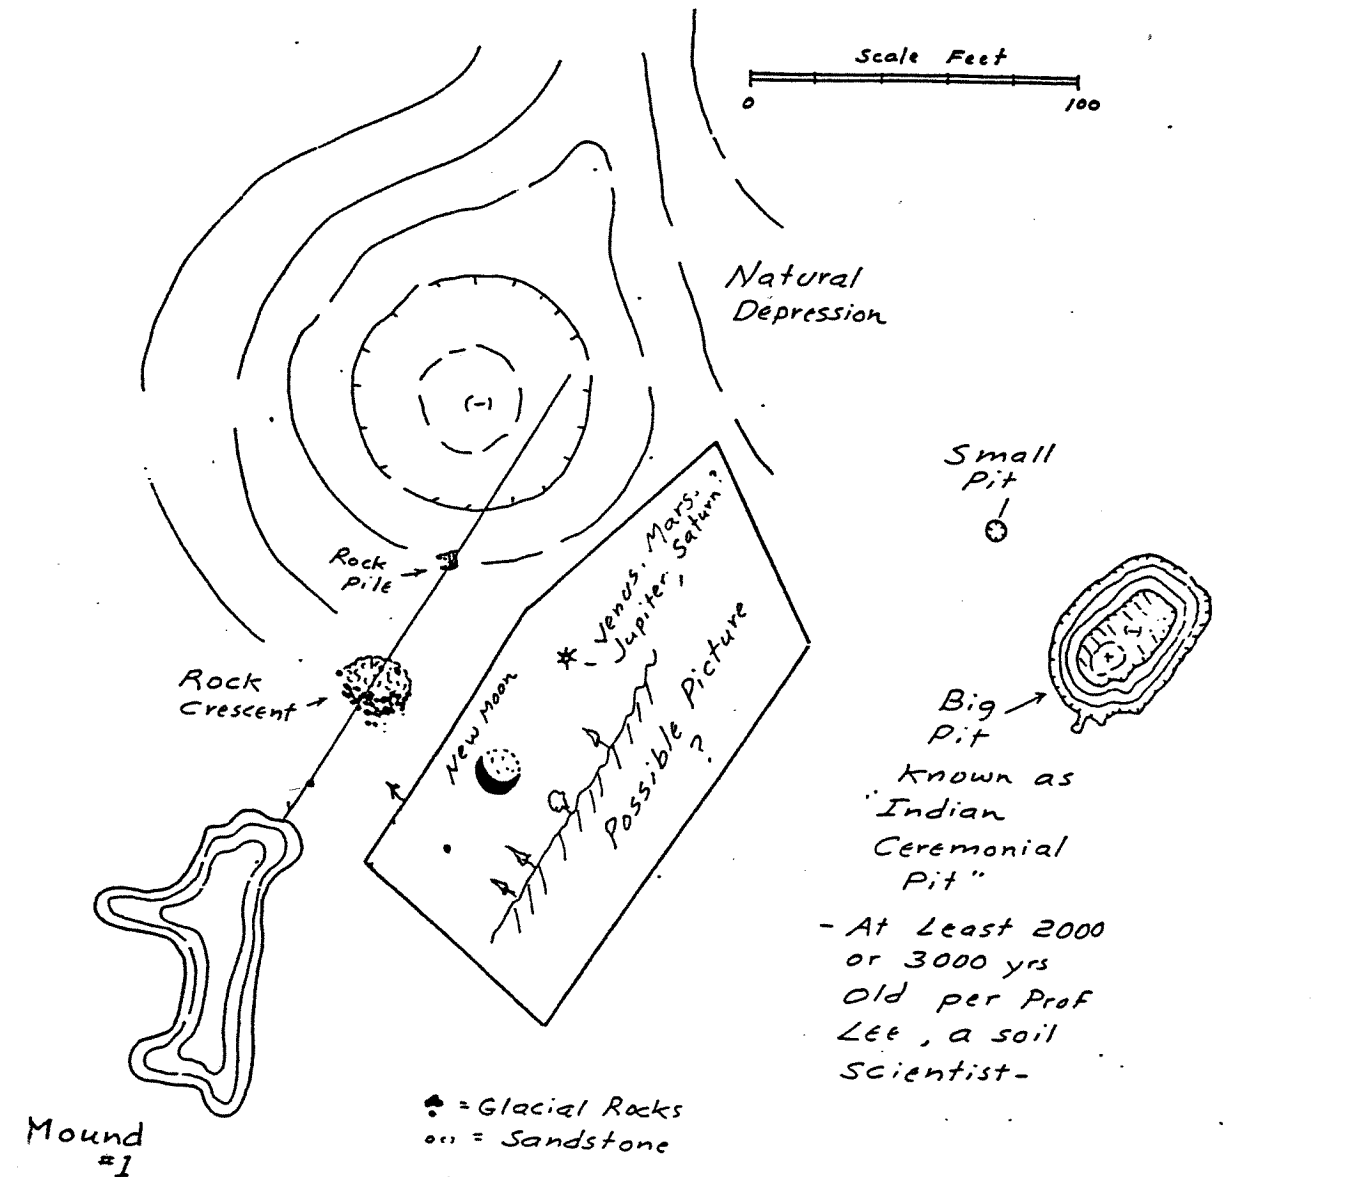 Scale Feet
0 100
Natural
Depression
Small
Pit
Rock
Pile
Rock
Crescent
Venus, Mars,
Jupiter, Saturn?
New Moon
Possible Picture
?
(-)
Big
Pit
Known as
"Indian
Ceremonial
Pit"
- At Least 2000
or 3000 yrs
Old per Prof
Lee, a soil
Scientist-
= Glacial Rocks
= Sandstone
Mound
#1